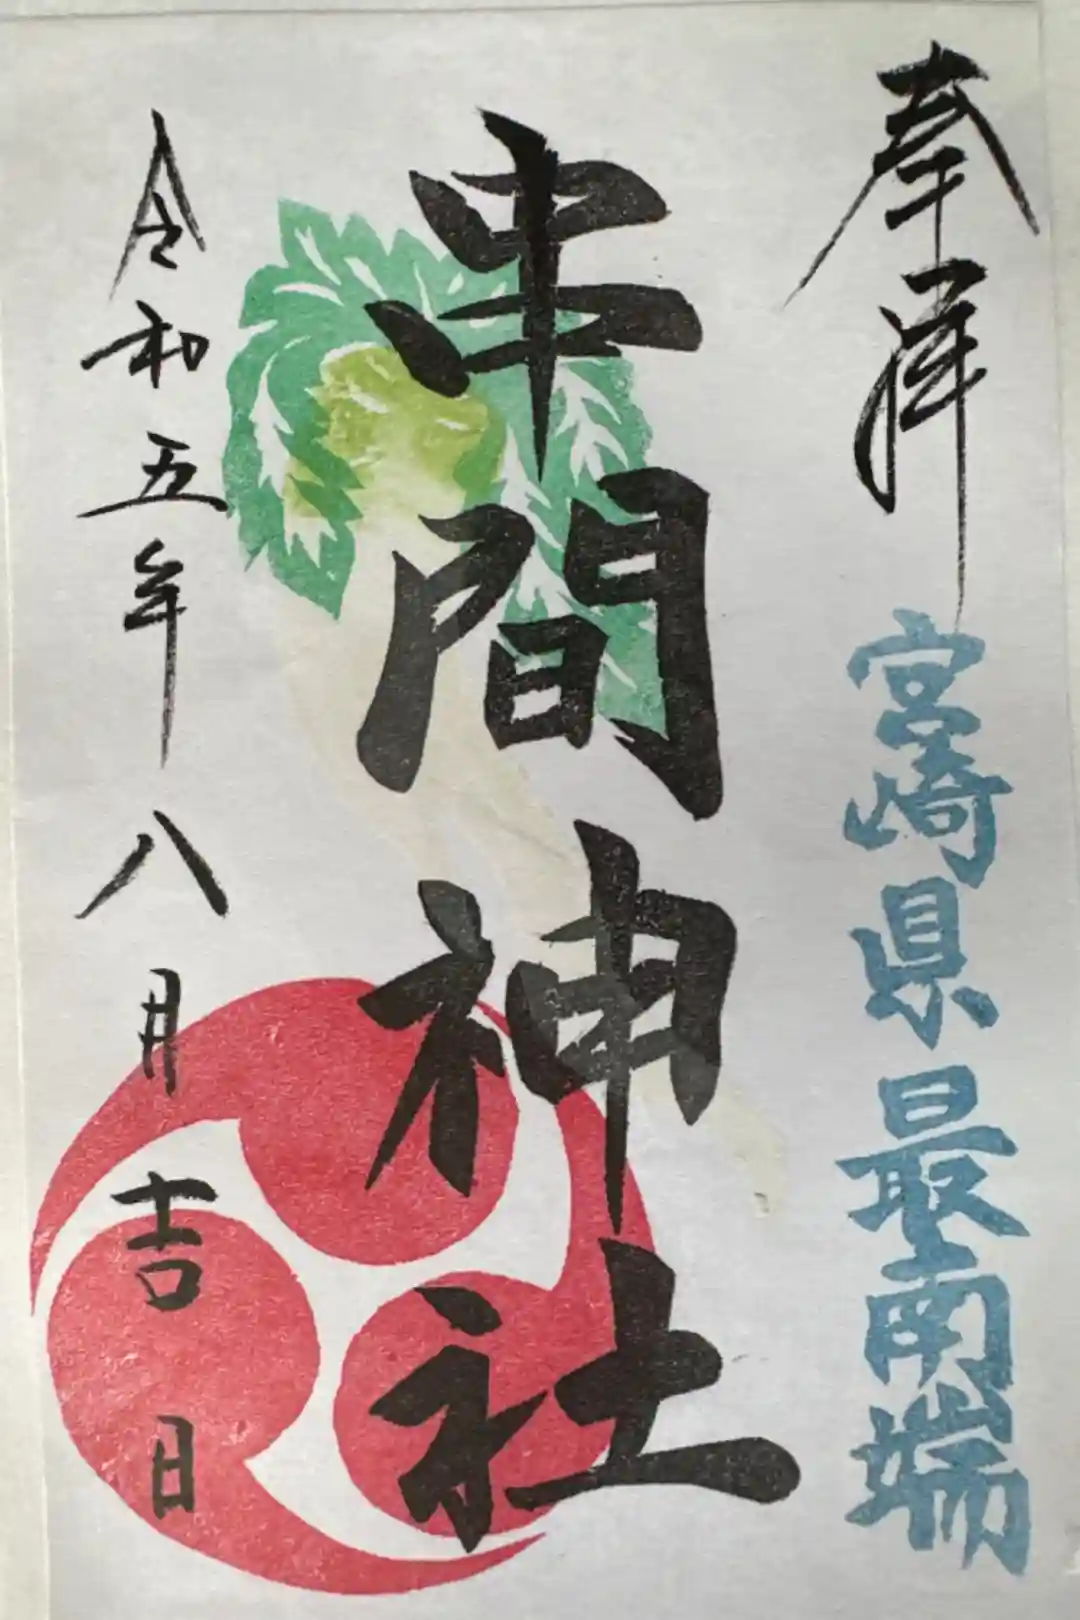 奉拝
宮崎県最南端
串間神社
令和五年八月吉日